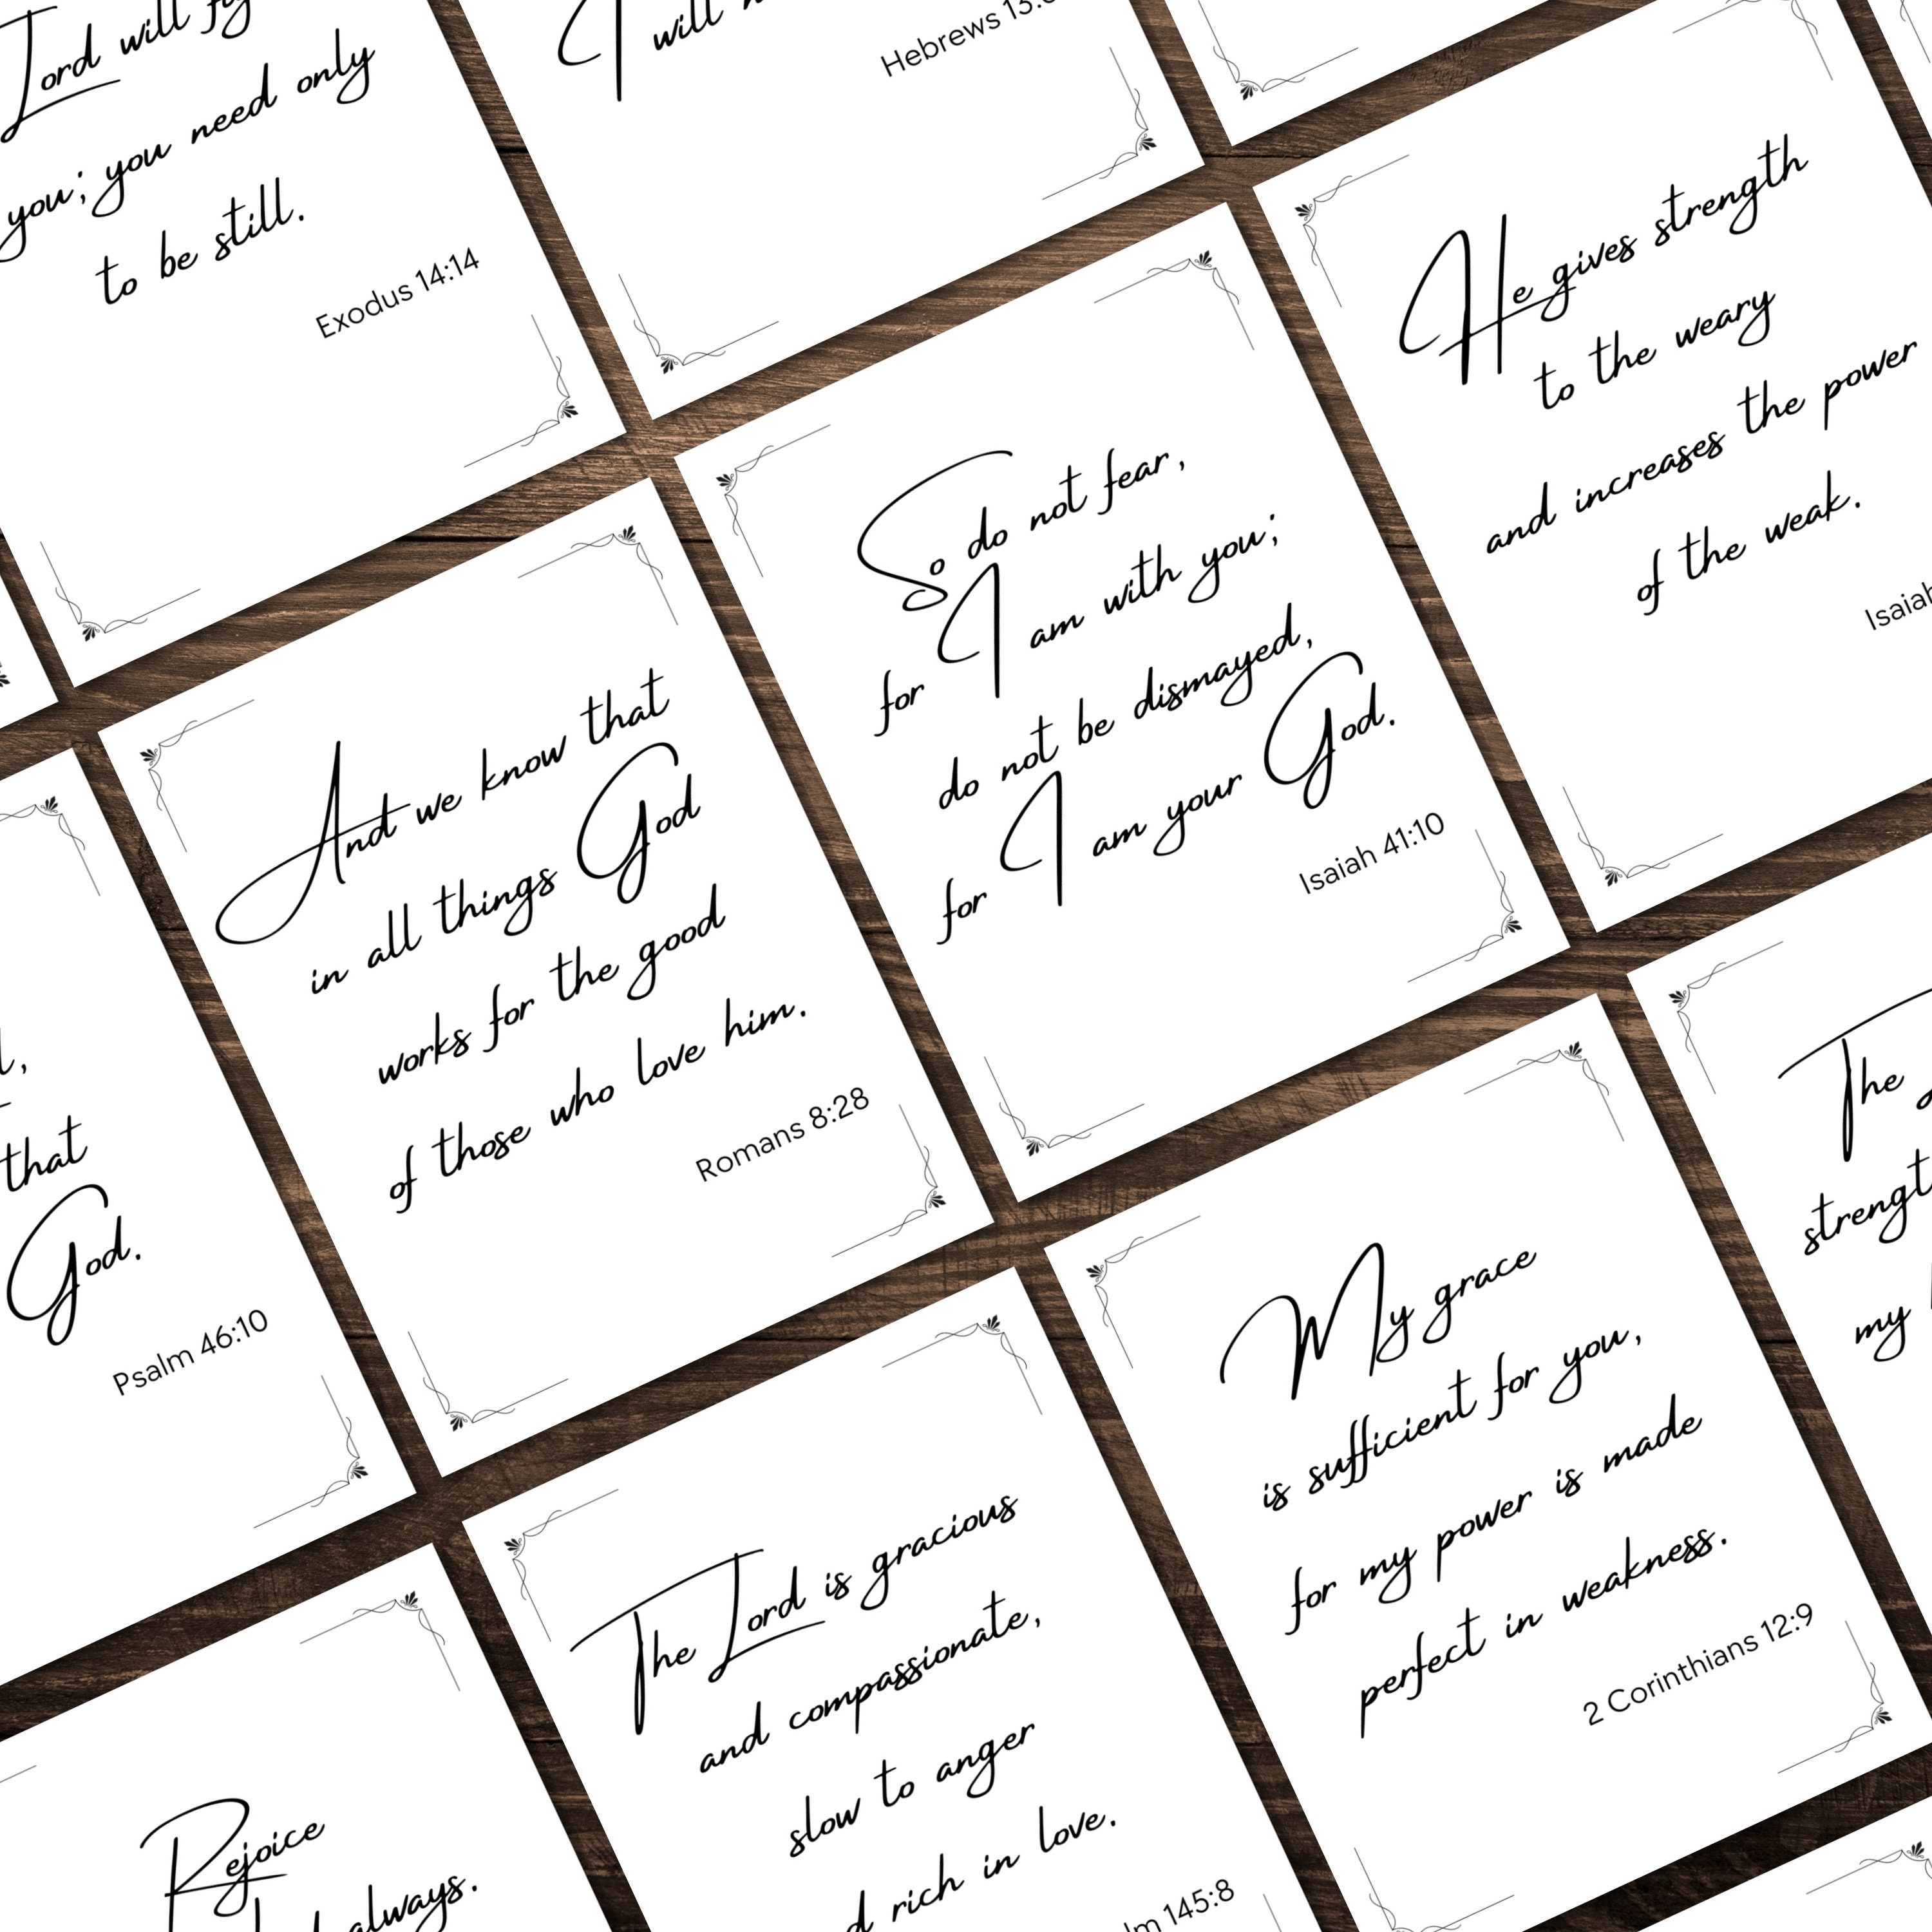 Lord will
you; you need only
to be still.
Exodus 14:14
I will
Hebrews
He gives strength
to the weary
and increases the power
of the weak.
Isaiah
So do not fear,
for I am with you;
do not be dismayed,
for I am your God.
Isaiah 41:10
And we know that
in all things God
works for the good
of those who love him.
Romans 8:28
that
God.
Psalm 46:10
The
my
My grace
is sufficient for you,
for my power is made
perfect in weakness.
2 Corinthians 12:9
The Lord is gracious
and compassionate,
slow to anger
rich in love.
145:8
Rejoice
always.